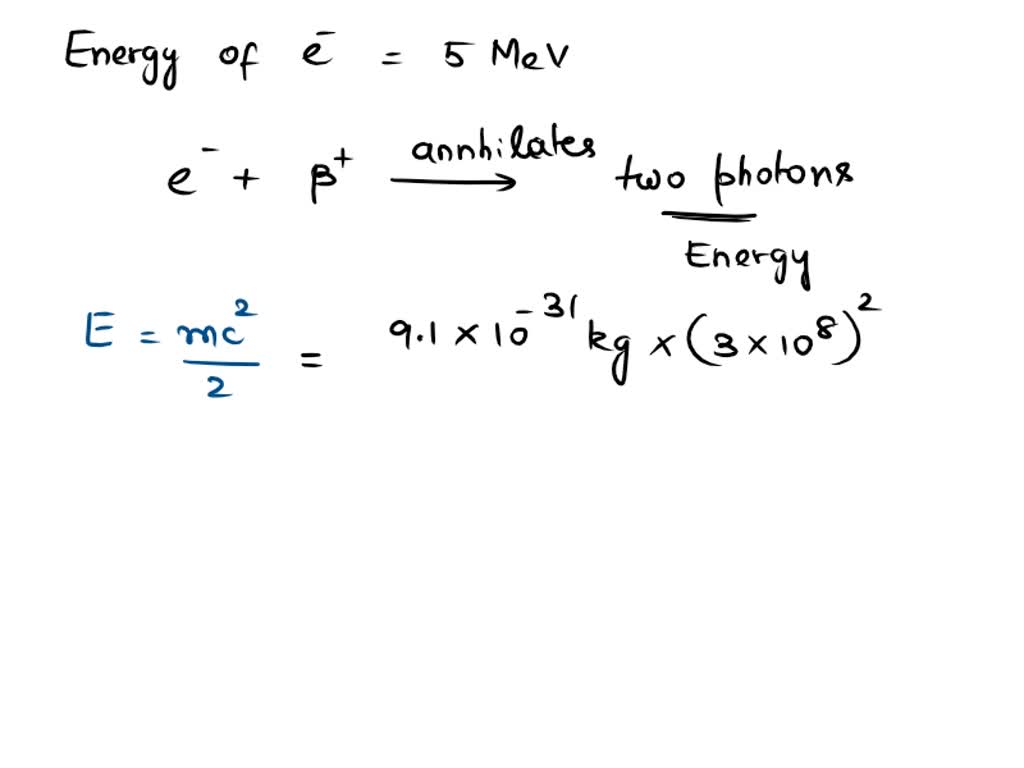 Energy of e⁻ = 5 MeV
e⁻ + β⁺ annhilates → two photons
Energy
E = mc²/2 = 9.1 × 10⁻³¹ kg × (3 × 10⁸)²